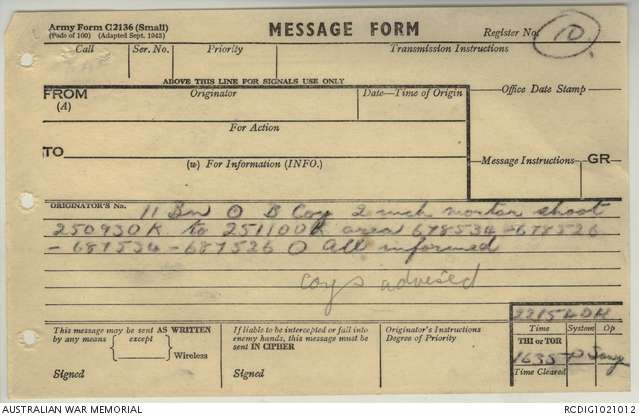 Army Form C2136 (Small)
(Pads of 100) (Adapted Sept. 1943)
MESSAGE FORM
Register No.
10
Call
Ser. No.
Priority
Transmission Instructions
ABOVE THIS LINE FOR SIGNALS USE ONLY
FROM
(A)
Originator
Date—Time of Origin
Office Date Stamp
For Action
TO
(w) For Information (INFO.)
Message Instructions
GR
ORIGINATOR'S No.
11 Bn O B Coy 2 inch mortar shoot
250930K to 251100K area 678534 -678526
- 687534 - 687526 O All informed
Coys advised
This message may be sent AS WRITTEN
by any means
except
Wireless
Signed
If liable to be intercepted or fall into
enemy hands, this message must be
sent IN CIPHER
Signed
Originator's Instructions
Degree of Priority
Time
System
Op
THI or TOR
1635
Time Cleared
AUSTRALIAN WAR MEMORIAL
RCDIG1021012